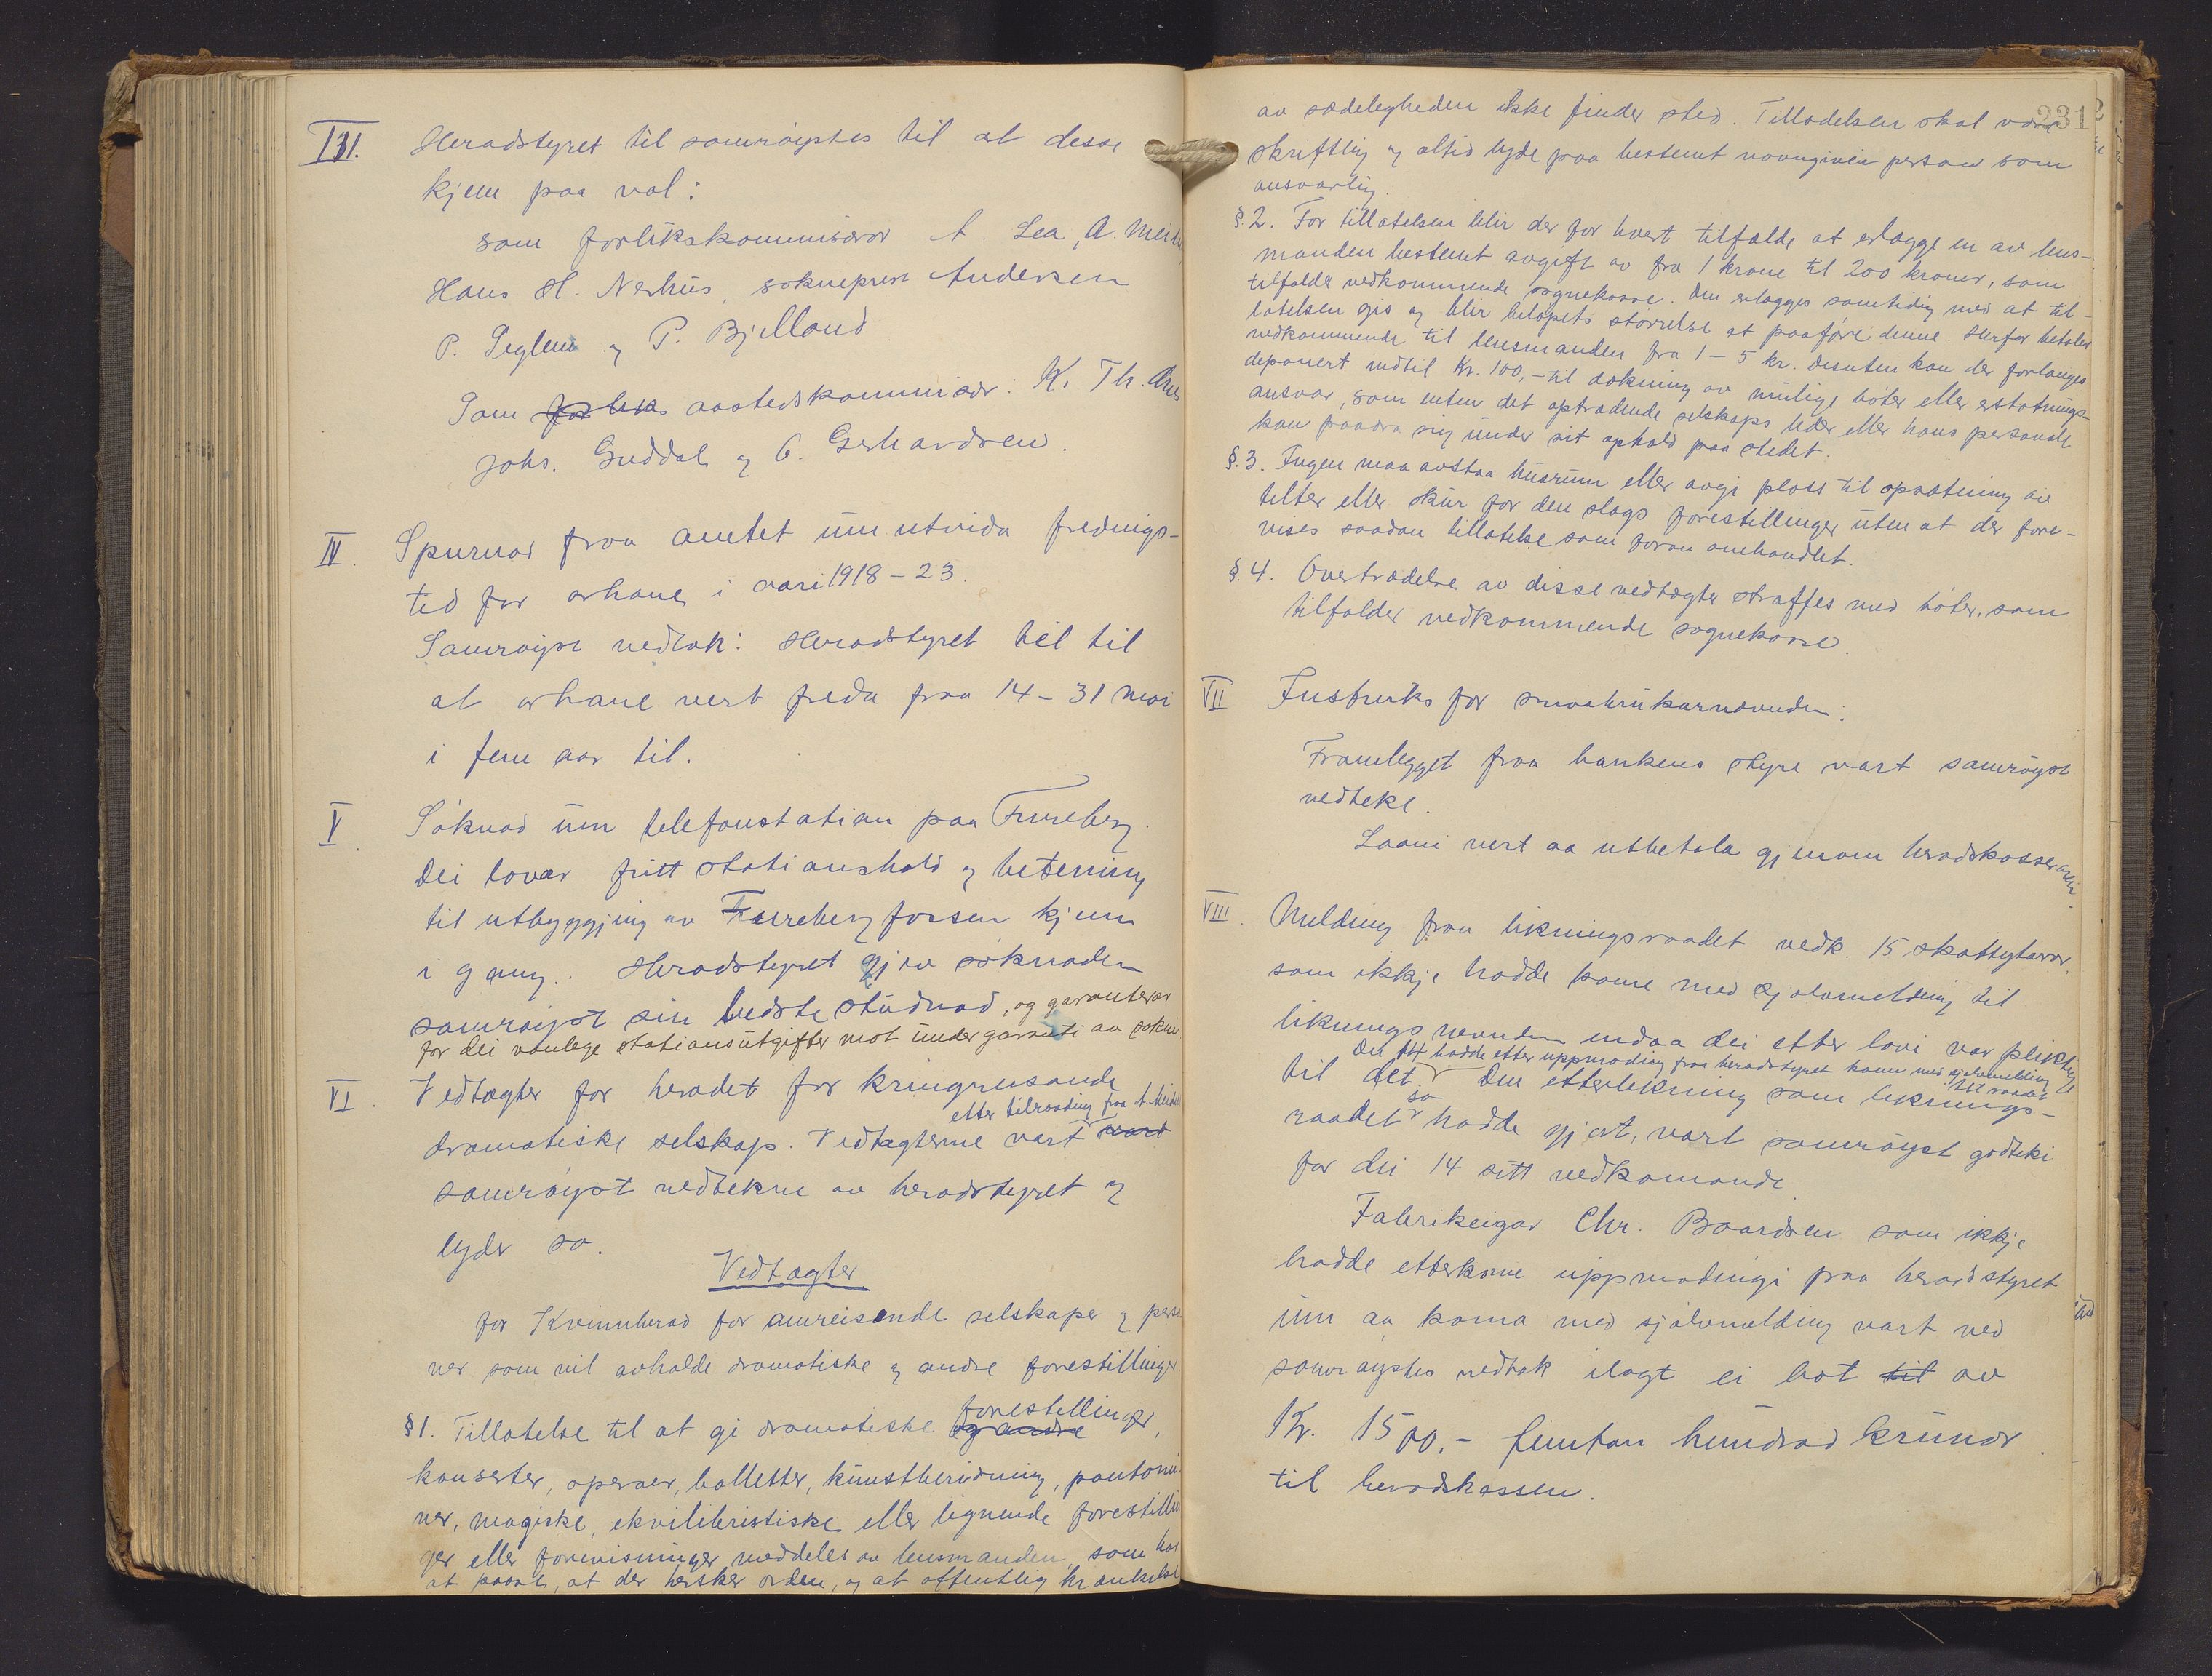 III. Heradstyret til samrøystes til at desse
kjem paa val:
som forlikskommisærar A. Lea, A.
Hans H. Nerhus, sokneprest Andersen
P. Teglem og P. Bjelland
Som forliks aastedskommisær: K. Th.
Johs. Guddal og O. Gerhardsen.
IV. Spurnad fraa amtet um utvida frednings-
tid for orhane i aari 1918 - 23.
Samrøyst vedtak: Heradstyret til
at orhane vert freda fraa 14 - 31 mai
i fem aar til.
V. Søknad um telefonstation paa Fureberg.
Dei lovar fritt stationshald og betening
til utbyggjing av Furebergfossen kjem
i gang. Heradstyret gjev søknaden
samrøyst sin bedste studnad, og garanterar
for dei vanlege stationsutgifter mot undergaranti av
VI. Vedtægter for heradet for kringreisande
etter tilraading fraa
dramatiske selskap. Vedtægterne vart vart
samrøyst vedtekne av heradstyret og
lyder so.
Vedtægter
for Kvinnherad for omreisende selskaper og perso
ner som vil avholde dramatiske og andre forestillinger
forestillinger,
§1. Tillatelse til at gi dramatiske og andre
konserter, operaer, balletter, kunstberidning, pantomi
ner, magiske, ekvilibristiske eller lignende forestillin
ger eller forevisninger, meddeles av lensmanden, som har
at paase, at der hersker orden, og at offentlig krænkelse
231
av sædeligheden ikke finder sted. Tilladelsen skal være
skriftlig og altid lyde paa bestemt navngiven person som
ansvarlig.
§2. For tillatelsen blir der for hvert tilfælde at erlægge en av lens-
manden bestemt avgift av fra 1 krone til 200 kroner, som
tilfalder vedkommende sognekasse. Den erlægges samtidig med at til-
latelsen gis og blir beløpets størrelse at paaføre denne. Herfor betaler
vedkommende til lensmanden fra 1 - 5 kr. Desuten kan der forlanges
deponert indtil Kr. 100,- til dækning av mulige bøter eller erstatnings-
ansvar, som enten det optrædende selskaps leder eller hans personale
kan paadra sig under sit ophold paa stedet.
§.3. Ingen maa avstaa husrum eller avgi plass til opsætning av
telter eller skur for den slags forestillinger uten at der fore-
vises saadan tillatelse som foran omhandlet.
§.4. Overtrædelse av disse vedtægter straffes med bøter, som
tilfalder vedkommende sognekasse.
VII Instruks for smaabrukarnævnden:
Framlegget fraa bankens styre vart samrøyst
vedteke.
Laani vert aa utbetala gjenom heradskasseraren.
VIII. Melding fraa likningsraadet vedk. 15 skattytarar,
som ikkje hadde kome med sjølvmelding til
likningsnevnden endaa dei etter lovi var pliktige
Dei 14 hadde etter uppmoding fraa heradstyret kome med sjølvmelding
til raadet
til det. Den etterlikning som liknings-
so
raadet hadde gjort, vart samrøyst godteki
for dei 14 sitt vedkomande.
Fabrikeigar Chr. Baardsen som ikkje
hadde etterkome uppmodingi fraa heradstyret
um aa koma med sjølvmelding vart ved
samrøystes vedtak ilagt ei bot til av
Kr. 1500,- femtan hundrad krunor
til heradskassen.